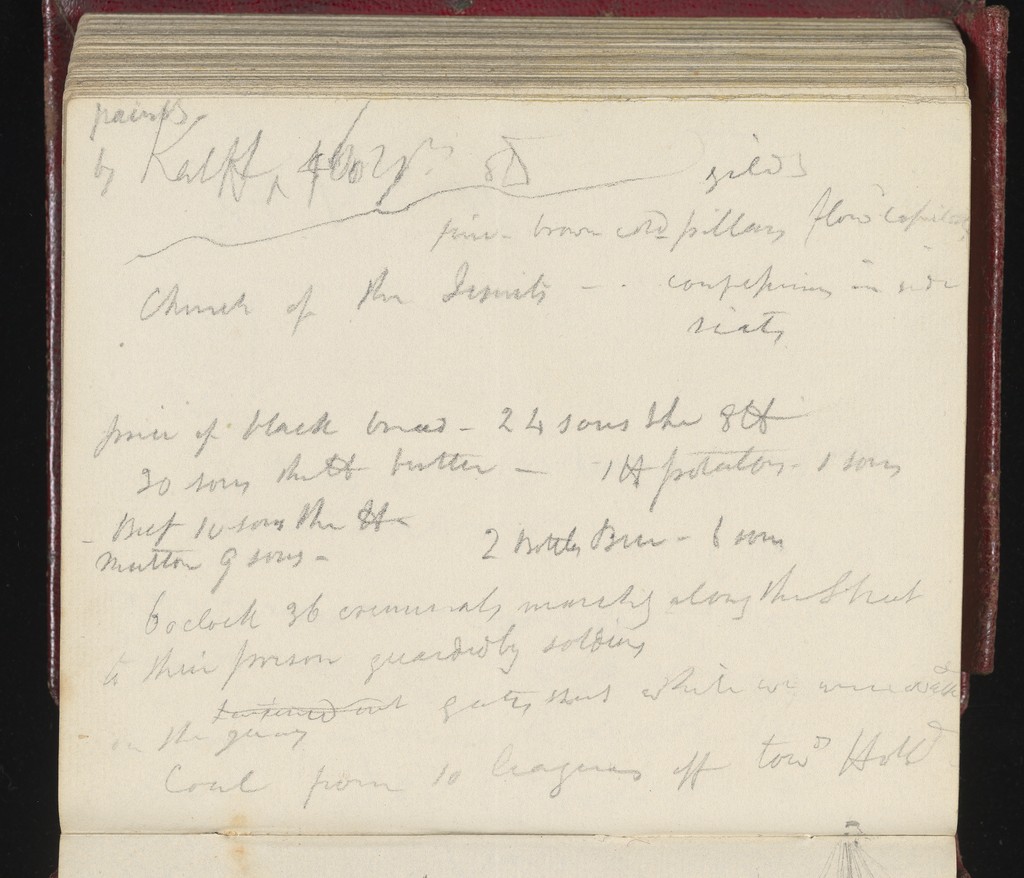 paints
by Kalff,
gild
fine - brown col pillars flow capitals
Church of the Jesuits - . confessions in side
seats
price of black bread - 24 sous the 8lb
30 sous the lb butter - 1 lb potatoes - 1 sous
- Beef 10 sous the lb
Mutton 9 sous - 2 Bottles Beer - 6 sous
6 oclock 36 criminals march'g along the Street
to their prison guarded by soldiers
gates shut while we were
on the quay
Coal from 10 leagues off tow'd Holl'd